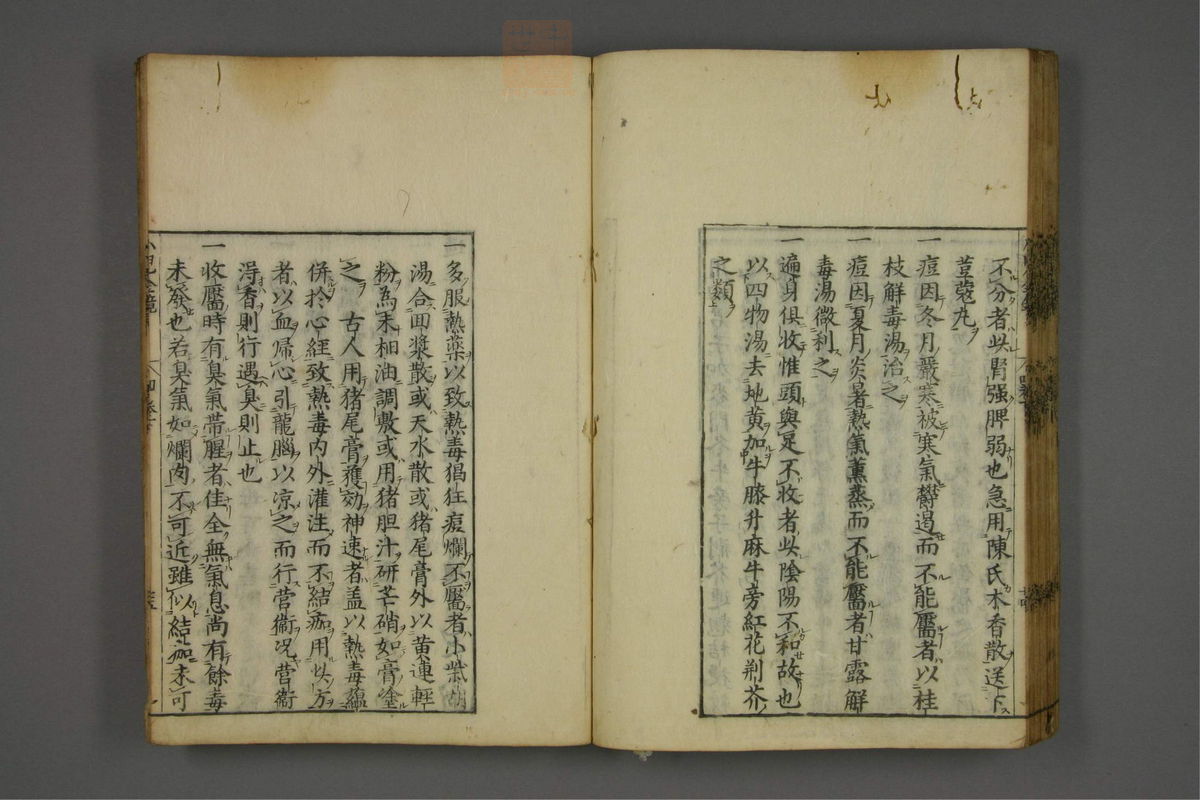 不分者此胃强脾弱也急用陳氏木香散送下
荳蔲丸
一 痘因冬月嚴寒被寒氣鬱遏而不能靨者以桂
枝解毒湯治之
一 痘因夏月炎暑熱氣薰蒸而不能靨者甘露解
毒湯微利之
一 遍身俱收惟頭與足不收者此陰陽不和故也
以四物湯去地黄加牛膝升麻牛旁紅花荆芥
之類
一 多服熱藥以致熱毒猖狂痘爛不靨者小柴胡
湯合囬漿散或天水散或猪尾膏外以黄連輕
粉為末相油調敷或用猪胆汁研芒硝如膏塗
之 古人用猪尾膏獲効神速者盖以熱毒蘊
併於心經致熱毒内外灌注而不結痂用此方
者以血歸心引龍腦以凉之而行营衞况营衞
淂香則行遇臭則止也
一 收靨時有臭氣帶腥者佳全無氣息尚有餘毒
未發也若臭氣如爛肉不可近雖似結痂未可